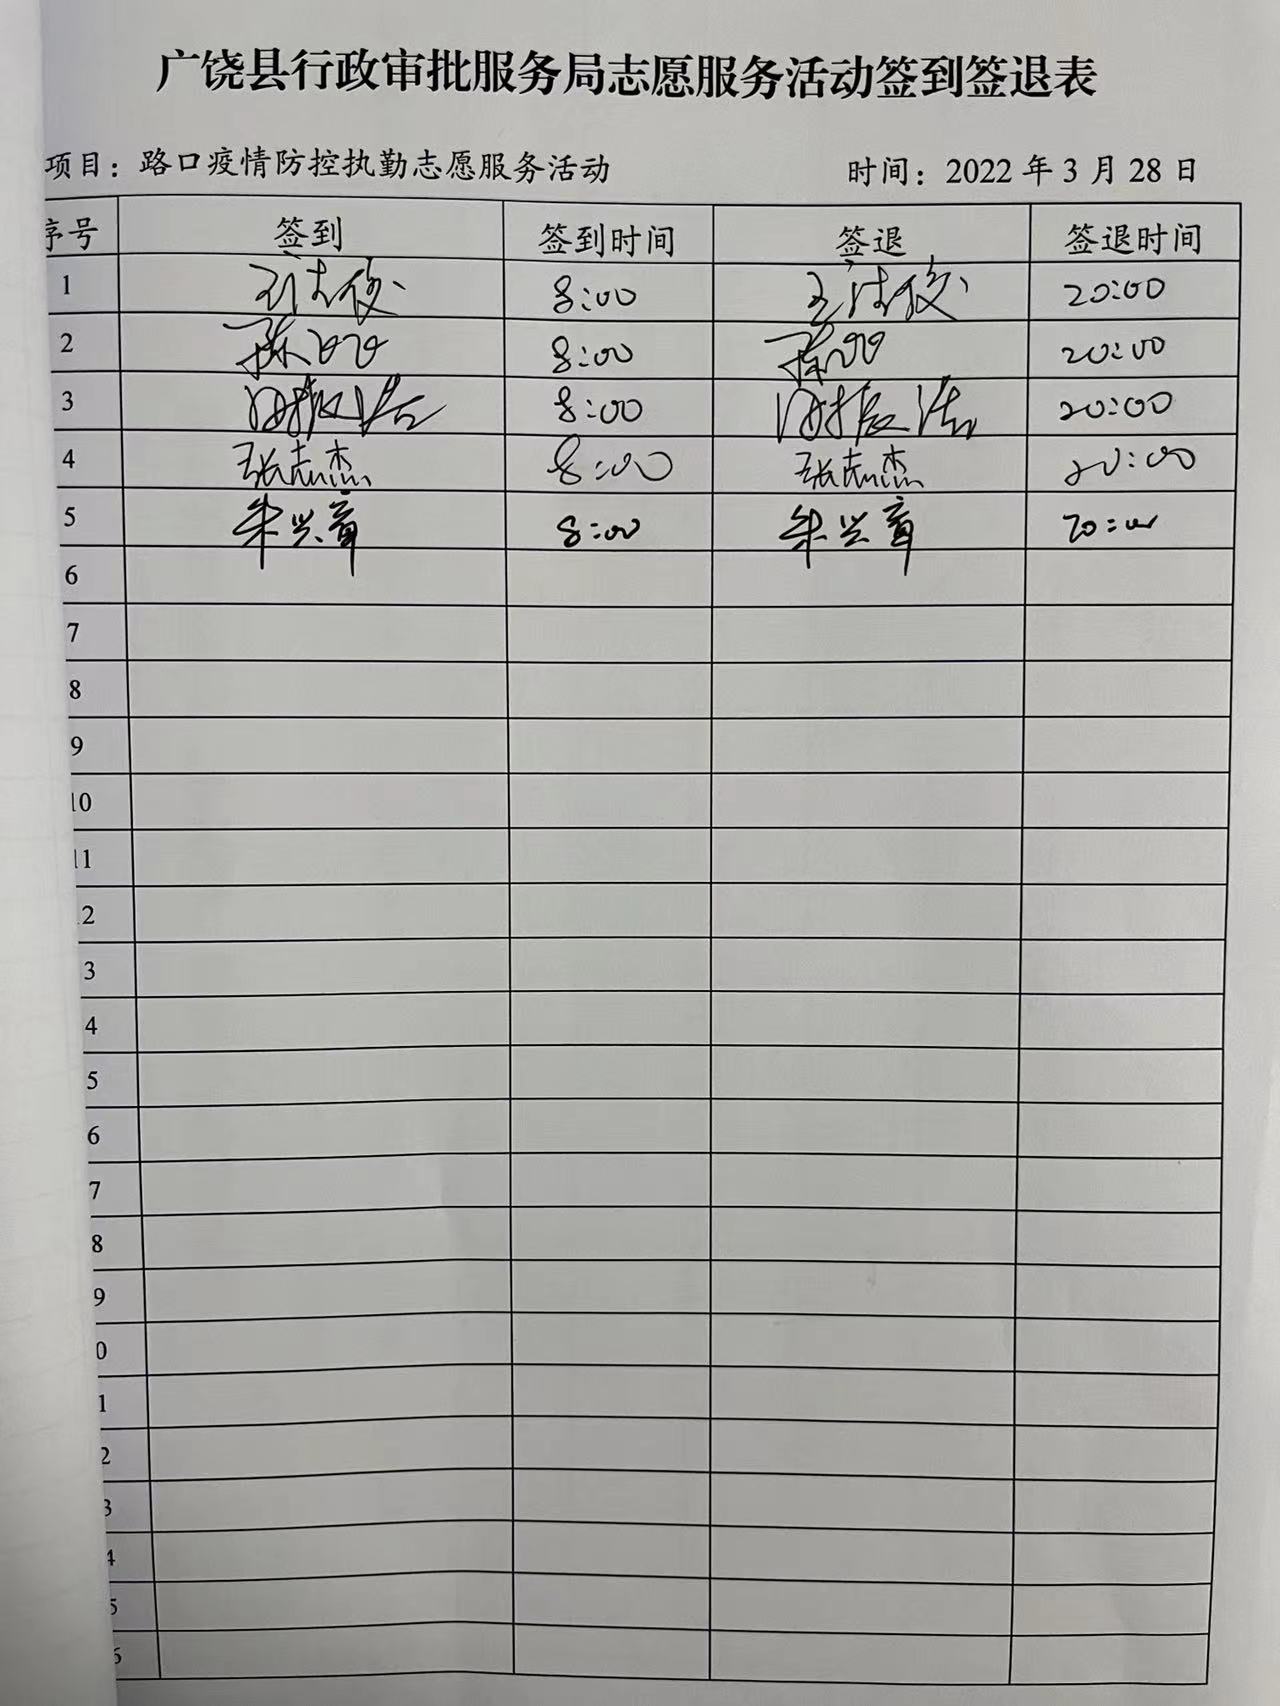 广饶县行政审批服务局志愿服务活动签到签退表
项目：路口疫情防控执勤志愿服务活动 时间：2022 年 3 月 28 日
序号 签到 签到时间 签退 签退时间
1 8:00 20:00
2 8:00 20:00
3 8:00 20:00
4 张志杰 8:00 张志杰 20:00
5 朱兴章 8:00 朱兴章 20:00
6
7
8
9
10
11
2
3
4
5
6
7
8
9
0
1
2
3
4
5
6